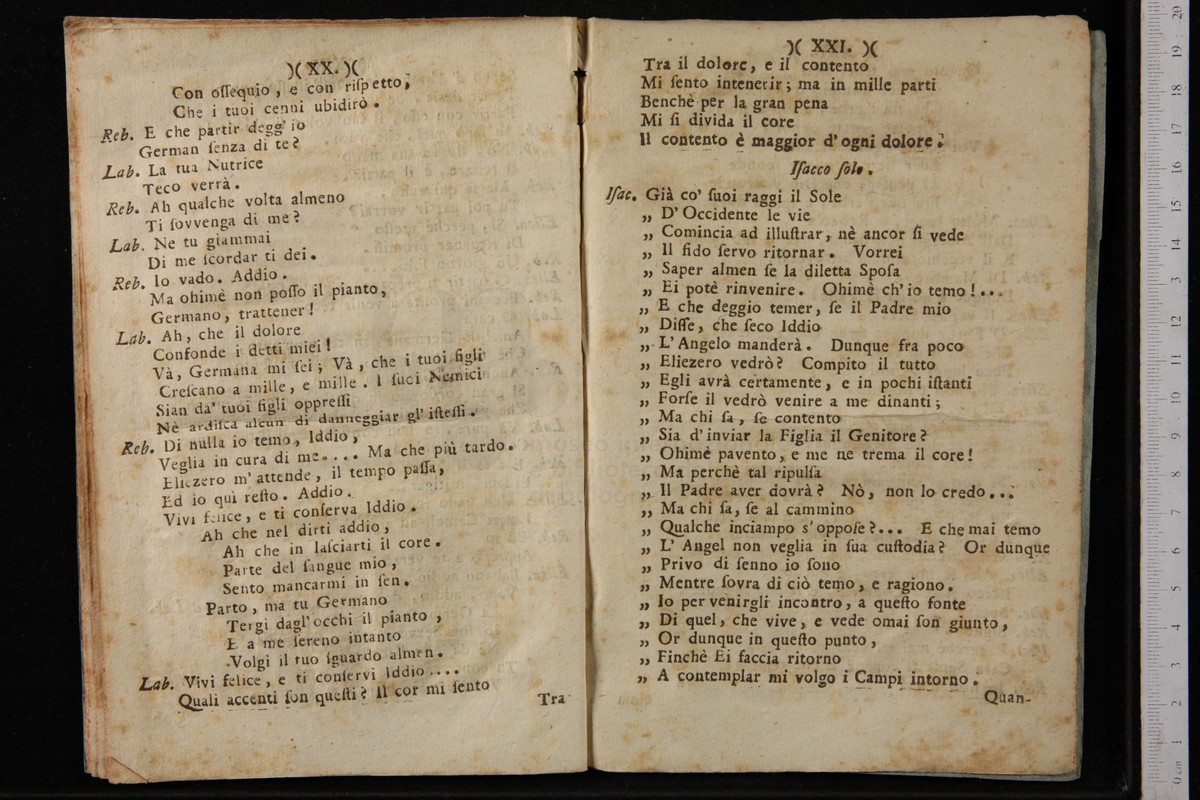 )( XX. )(
Con oſſequio, e con riſpetto,
Che i tuoi cenni ubidirò.
Reb. E che partir degg' io
German ſenza di te?
Lab. La tua Nutrice
Teco verrà.
Reb. Ah qualche volta almeno
Ti ſovvenga di me?
Lab. Ne tu giammai
Di me ſcordar ti dei.
Reb. Io vado. Addio.
Ma ohimè non poſſo il pianto,
Germano, trattener!
Lab. Ah, che il dolore
Confonde i detti miei!
Và, Germana mi ſei; Và, che i tuoi figli
Creſcano a mille, e mille. I ſuoi Nemici
Sian da' tuoi figli oppreſſi
Nè ardiſca alcun di danneggiar gl' iſteſſi.
Reb. Di nulla io temo, Iddio,
Veglia in cura di me.... Ma che più tardo.
Eliezero m' attende, il tempo paſſa,
Ed io quì reſto. Addio.
Vivi felice, e ti conſerva Iddio.
Ah che nel dirti addio,
Ah che in laſciarti il core.
Parte del ſangue mio,
Sento mancarmi in ſen.
Parto, ma tu Germano
Tergi dagl' occhi il pianto,
E a me ſereno intanto
Volgi il tuo ſguardo almen.
Lab. Vivi felice, e ti conſervi Iddio....
Quali accenti ſon queſti? Il cor mi ſento
Tra
)( XXI. )(
Tra il dolore, e il contento
Mi ſento intenerir; ma in mille parti
Benchè per la gran pena
Mi ſi divida il core
Il contento è maggior d' ogni dolore.
Iſacco ſolo.
Iſac. Già co' ſuoi raggi il Sole
„ D' Occidente le vie
„ Comincia ad illuſtrar, nè ancor ſi vede
„ Il fido ſervo ritornar. Vorrei
„ Saper almen ſe la diletta Spoſa
„ Ei potè rinvenire. Ohimè ch' io temo!...
„ E che deggio temer, ſe il Padre mio
„ Diſſe, che ſeco Iddio
„ L' Angelo manderà. Dunque fra poco
„ Eliezero vedrò? Compito il tutto
„ Egli avrà certamente, e in pochi iſtanti
„ Forſe il vedrò venire a me dinanti;
„ Ma chi ſa, ſe contento
„ Sia d' inviar la Figlia il Genitore?
„ Ohimè pavento, e me ne trema il core!
„ Ma perchè tal ripulſa
„ Il Padre aver dovrà? Nò, non lo credo...
„ Ma chi ſa, ſe al cammino
„ Qualche inciampo s' oppoſe?... E che mai temo
„ L' Angel non veglia in ſua cuſtodia? Or dunque
„ Privo di ſenno io ſono
„ Mentre ſovra di ciò temo, e ragiono.
„ Io per venirgli incontro, a queſto fonte
„ Di quel, che vive, e vede omai ſon giunto,
„ Or dunque in queſto punto,
„ Finchè Ei faccia ritorno
„ A contemplar mi volgo i Campi intorno.
Quan-